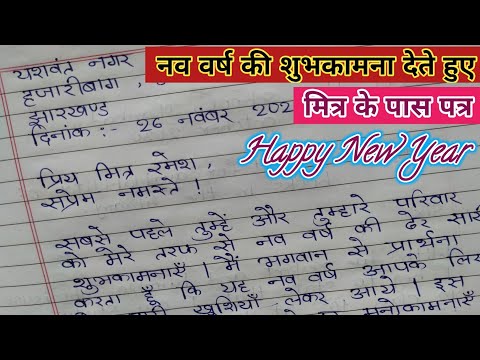 नव वर्ष की शुभकामना देते हुए
मित्र के पास पत्र
Happy New Year
यशवंत नगर
हजारीबाग,
झारखण्ड
दिनांक :- 26 नवंबर 202
प्रिय मित्र रमेश,
सप्रेम नमस्ते !
सबसे पहले तुम्हें और तुम्हारे परिवार
को मेरे तरफ से नव वर्ष की ढेर सारी
शुभकामनाएँ । मैं भगवान से प्रार्थना
करता हूँ कि यह नव वर्ष आपके लिए
खुशियाँ लेकर आये । इस
मनोकामनाएँ